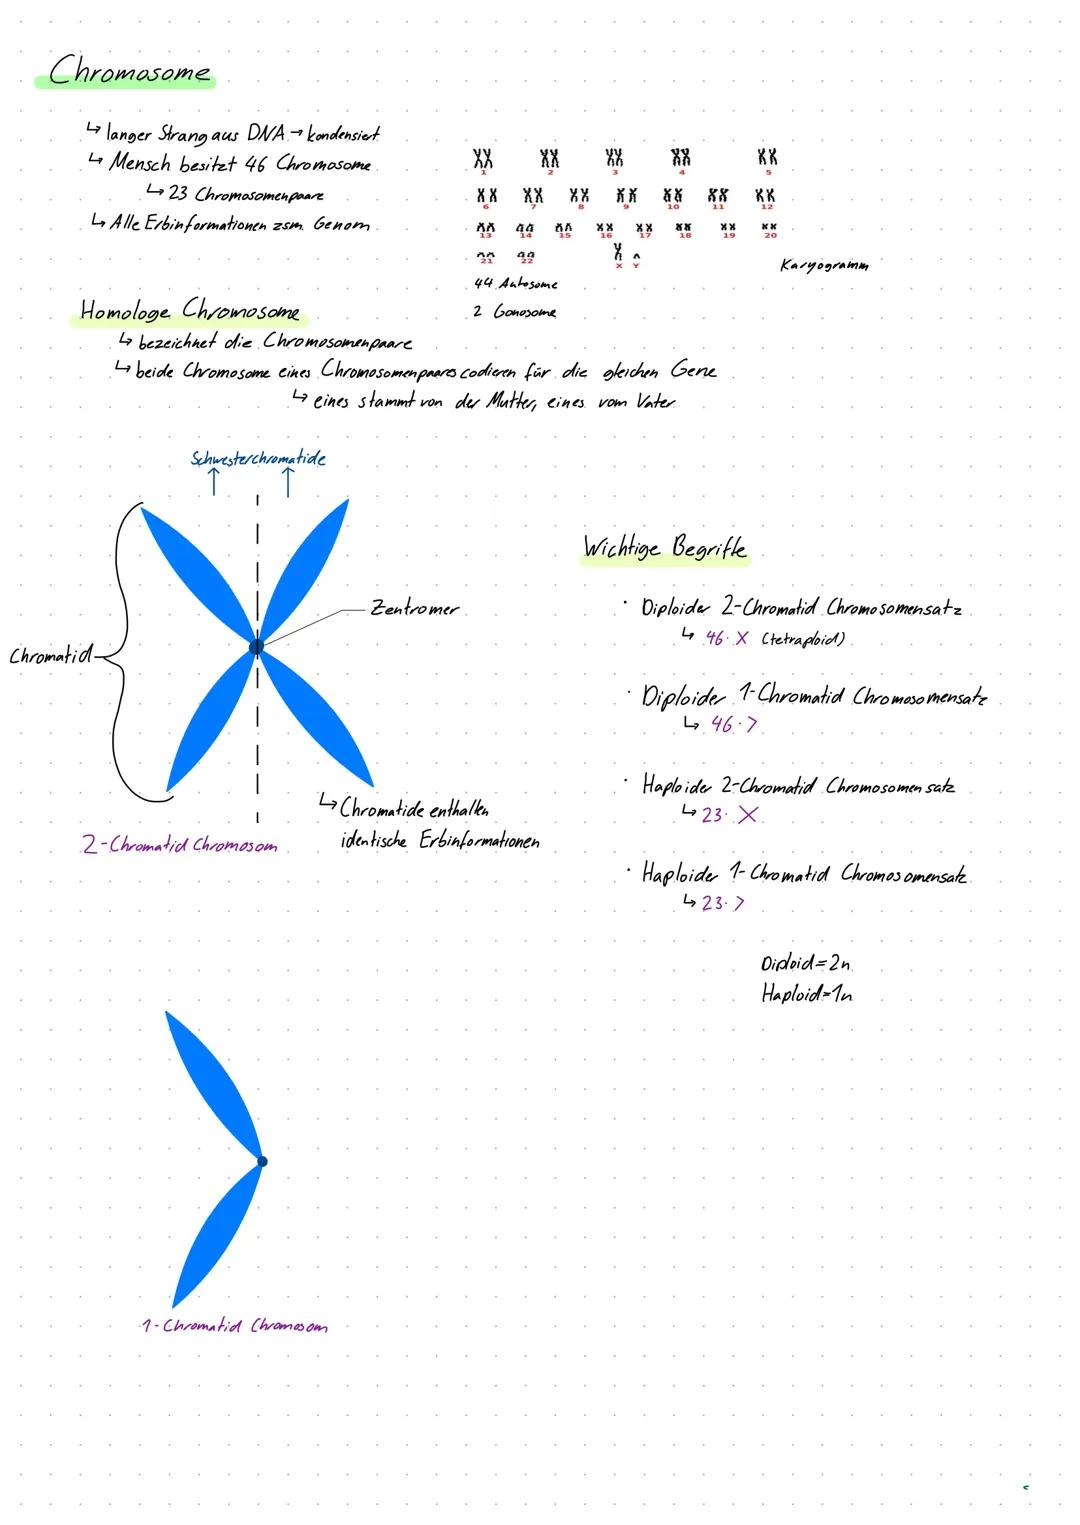 Chromosome
↳ langer Strang aus DNA → kondensiert
↳ Mensch besitzt 46 Chromosome
↳ 23 Chromosomenpaare
↳ Alle Erbinformationen zsm. Genom
1 2 3 4 5
6 7 8 9 10 11 12
13 14 15 16 17 18 19 20
21 22 X Y
Karyogramm
44 Autosome
2 Gonosome
Homologe Chromosome
↳ bezeichnet die Chromosomenpaare
↳ beide Chromosome eines Chromosomenpaares codieren für die gleichen Gene
↳ eines stammt von der Mutter, eines vom Vater
Schwesterchromatide
Zentromer
Chromatid
↳ Chromatide enthalten
identische Erbinformationen
2-Chromatid Chromosom
Wichtige Begriffe
· Diploider 2-Chromatid Chromosomensatz
↳ 46 · X (tetraploid)
· Diploider 1-Chromatid Chromosomensatz
↳ 46 · >
· Haploider 2-Chromatid Chromosomensatz
↳ 23 · X
· Haploider 1-Chromatid Chromosomensatz
↳ 23 · >
Diploid=2n
Haploid=1n
1-Chromatid Chromosom